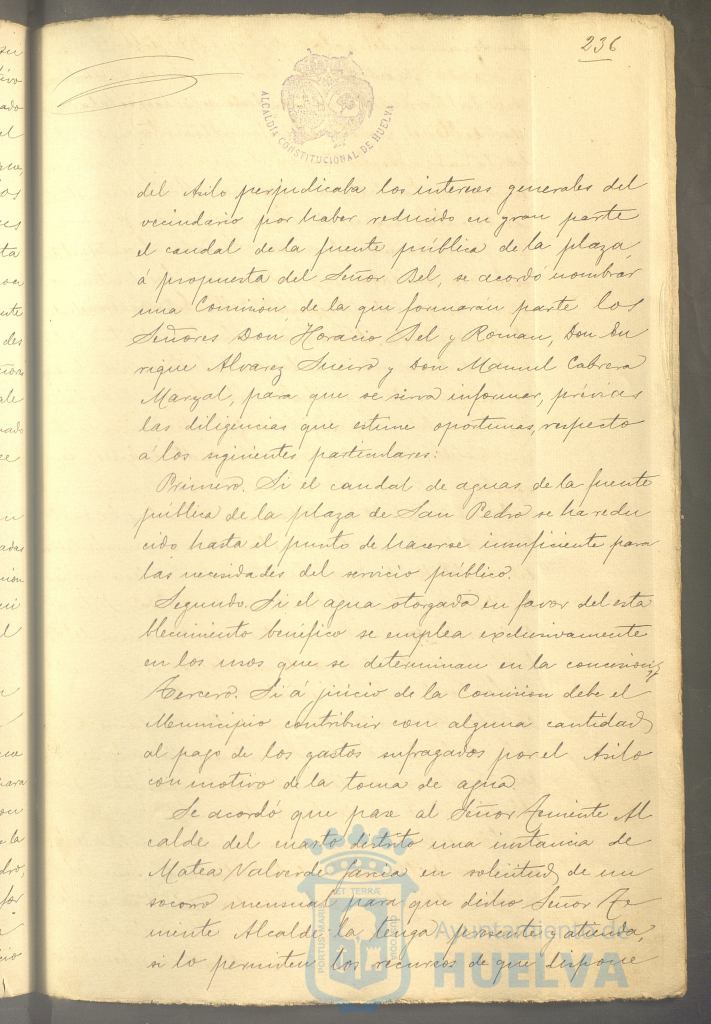 236
ALCALDÍA CONSTITUCIONAL DE HUELVA
del Asilo perjudicaba los intereses generales del
vecindario por haber reducido en gran parte
el caudal de la fuente pública de la plaza,
á propuesta del Señor Bel, se acordó nombrar
una Comisión, de la que formarán parte los
Señores Don Horacio Bel y Roman, Don En
rique Alvarez Sueiro y Don Manuel Cabrera
Maryal, para que se sirva informar, prévias
las diligencias que estime oportunas, respecto
á los siguientes particulares:
Primero. Si el caudal de aguas de la fuente
pública de la plaza de San Pedro se ha redu
cido hasta el punto de hacerse insuficiente para
las necesidades del servicio público.
Segundo. Si el agua otorgada en favor del esta
blecimiento benéfico se emplea exclusivamente
en los usos que se determinan en la concesión; y
Tercero. Si á juicio de la Comisión debe el
Municipio contribuir con alguna cantidad
al pago de los gastos sufragados por el Asilo
con motivo de la toma de agua.
Se acordó que pase al Señor Teniente Al
calde del cuarto distrito una instancia de
Matea Valverde García en solicitud de un
socorro mensual para que dicho Señor Te
niente Alcalde la tenga presente y atienda,
si lo permiten los recursos de que dispone
PORTUS MARIS ET TERRÆ CUSTODIA
Ayuntamiento de
HUELVA